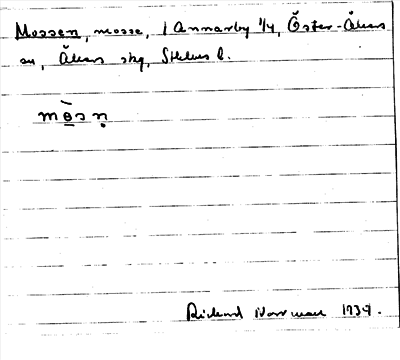 Mossen, mosse, 1 Annarby 1/4, Öster-Åkers
sn, Åkers skg, Sthlms l.
mɵsn̥
Rickard 1934.